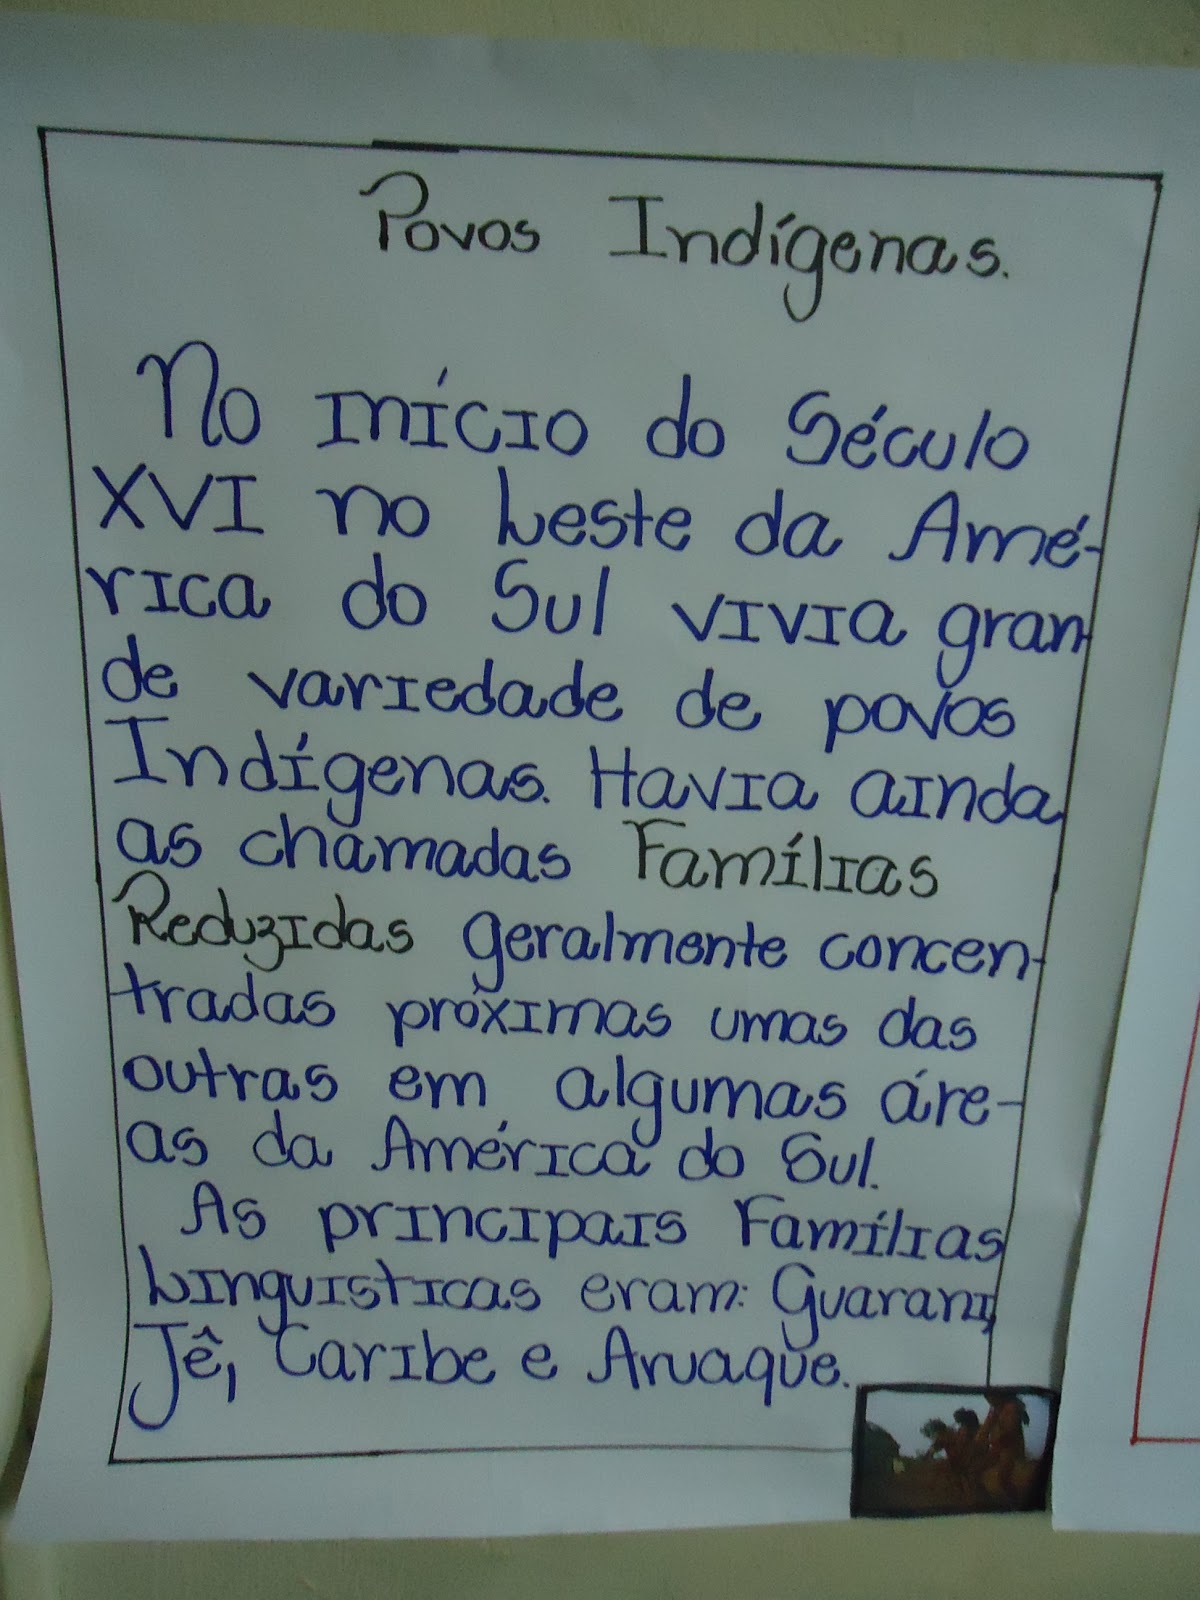 Povos Indígenas.
No início do Século
XVI no Leste da Amé-
rica do Sul vivia gran
de variedade de povos
Indígenas. Havia ainda
as chamadas Famílias
Reduzidas geralmente concen-
tradas próximas umas das
outras em algumas áre-
as da América do Sul.
As principais Famílias
Linguisticas eram: Guarani,
Jê, Caribe e Aruaque.